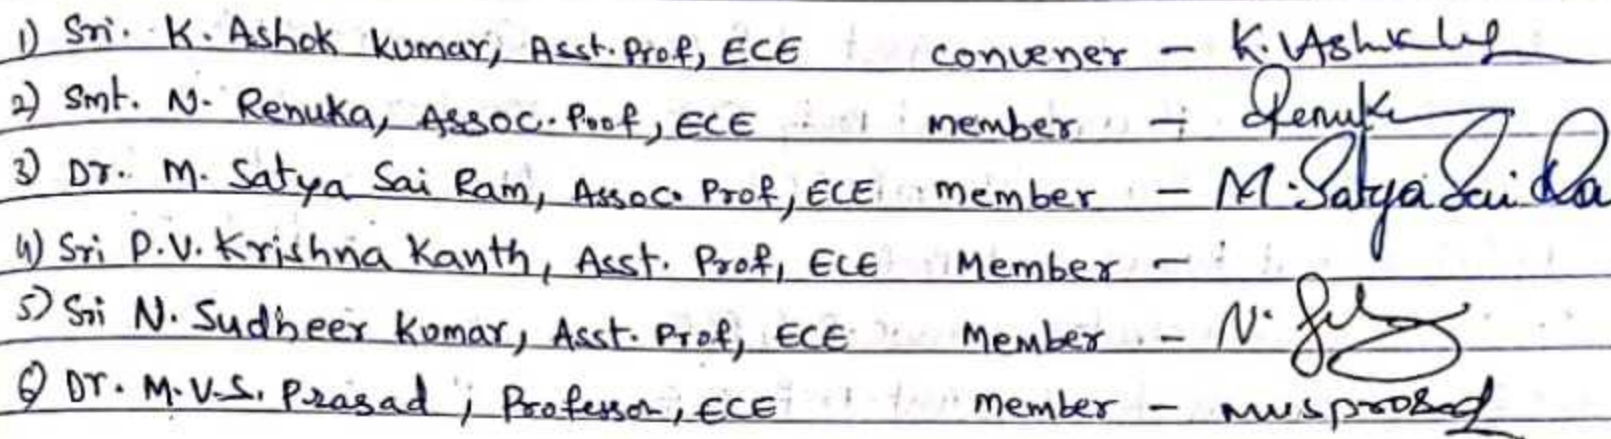 1) Sri. K. Ashok Kumar, Asst. Prof, ECE convener - K. Ashok
2) Smt. N. Renuka, Assoc. Prof, ECE member - Renuka
3) Dr. M. Satya Sai Ram, Assoc. Prof, ECE member - M. Satya Sai Ra
4) Sri P.V. Krishna Kanth, Asst. Prof, ECE Member -
5) Sri N. Sudheer Kumar, Asst. Prof, ECE Member - N.
6) Dr. M.V.S. Prasad, Professor, ECE member - mvsprasad